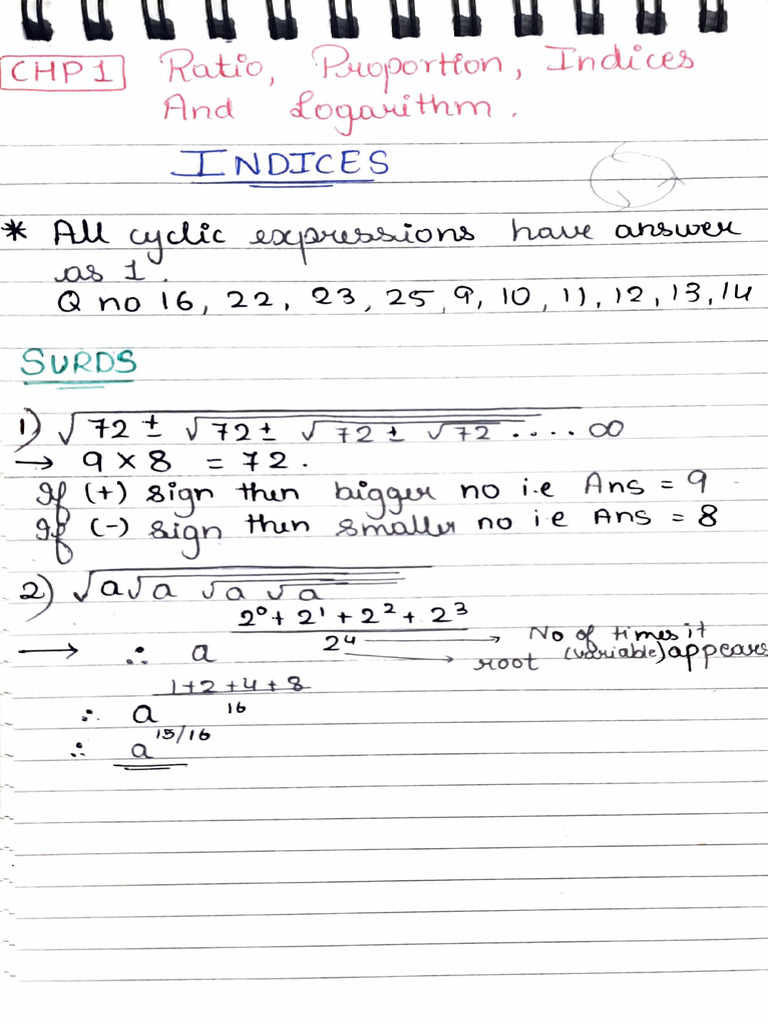 CHP 1 Ratio, Proportion, Indices
And Logarithm.
INDICES
* All cyclic expressions have answer
as 1.
Q no 16, 22, 23, 25, 9, 10, 11, 12, 13, 14
SURDS
1) √72 ± √72 ± √72 ± √72 .... ∞
→ 9 × 8 = 72.
If (+) sign then bigger no i.e Ans = 9
If (-) sign then smaller no i e Ans = 8
2) √a√a √a √a
2⁰ + 2¹ + 2² + 2³
⟶ ∴ a 2⁴ → No of times it (variable) appears
→ root
1+2+4+8
∴ a 16
∴ a 15/16